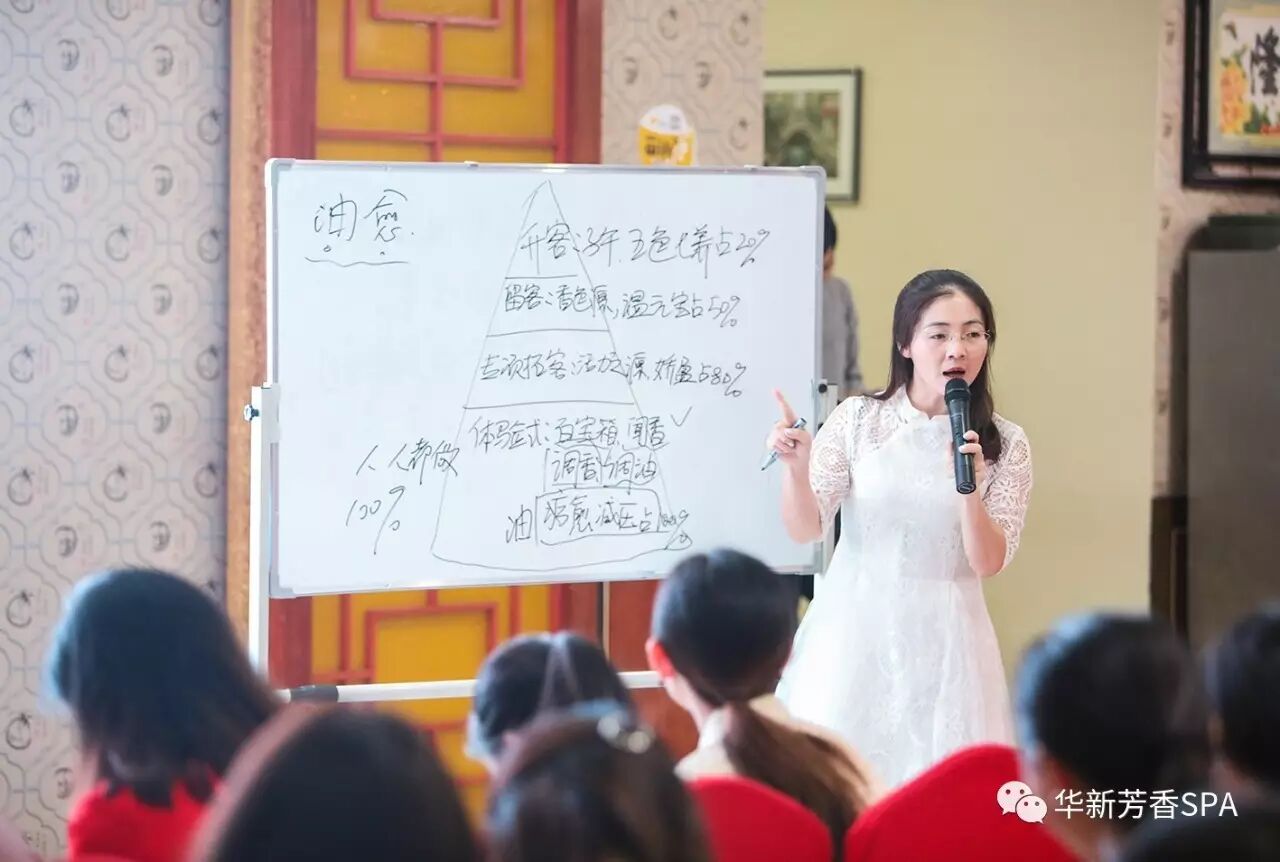 油愈
升客:子午、五色七养占20%
留客:香色源,温元宝占50%
专项拓客:活力源、娇盈占80%
体验式:百宝箱、闻香✓
调香 调油
人人都做
100%
油 疗愈减压占100%
隆
华新芳香SPA